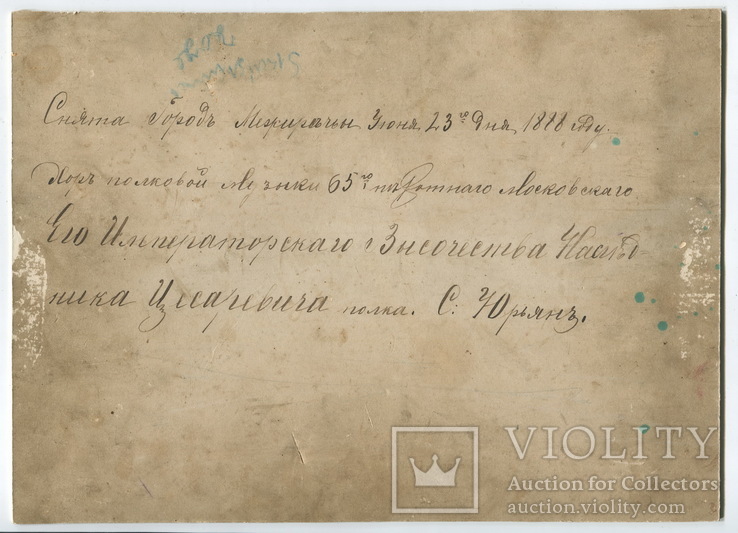 Снята Городъ Межиричьи Июня 23го Дня 1888 году.
Хоръ полковой Музыки 65го пѣхотнаго Московскаго
Его Императорскаго Высочества Наслѣд-
ника Цесаревича полка. С: Юрьянъ.
VIOLITY
Auction for Collectors
auction.violity.com